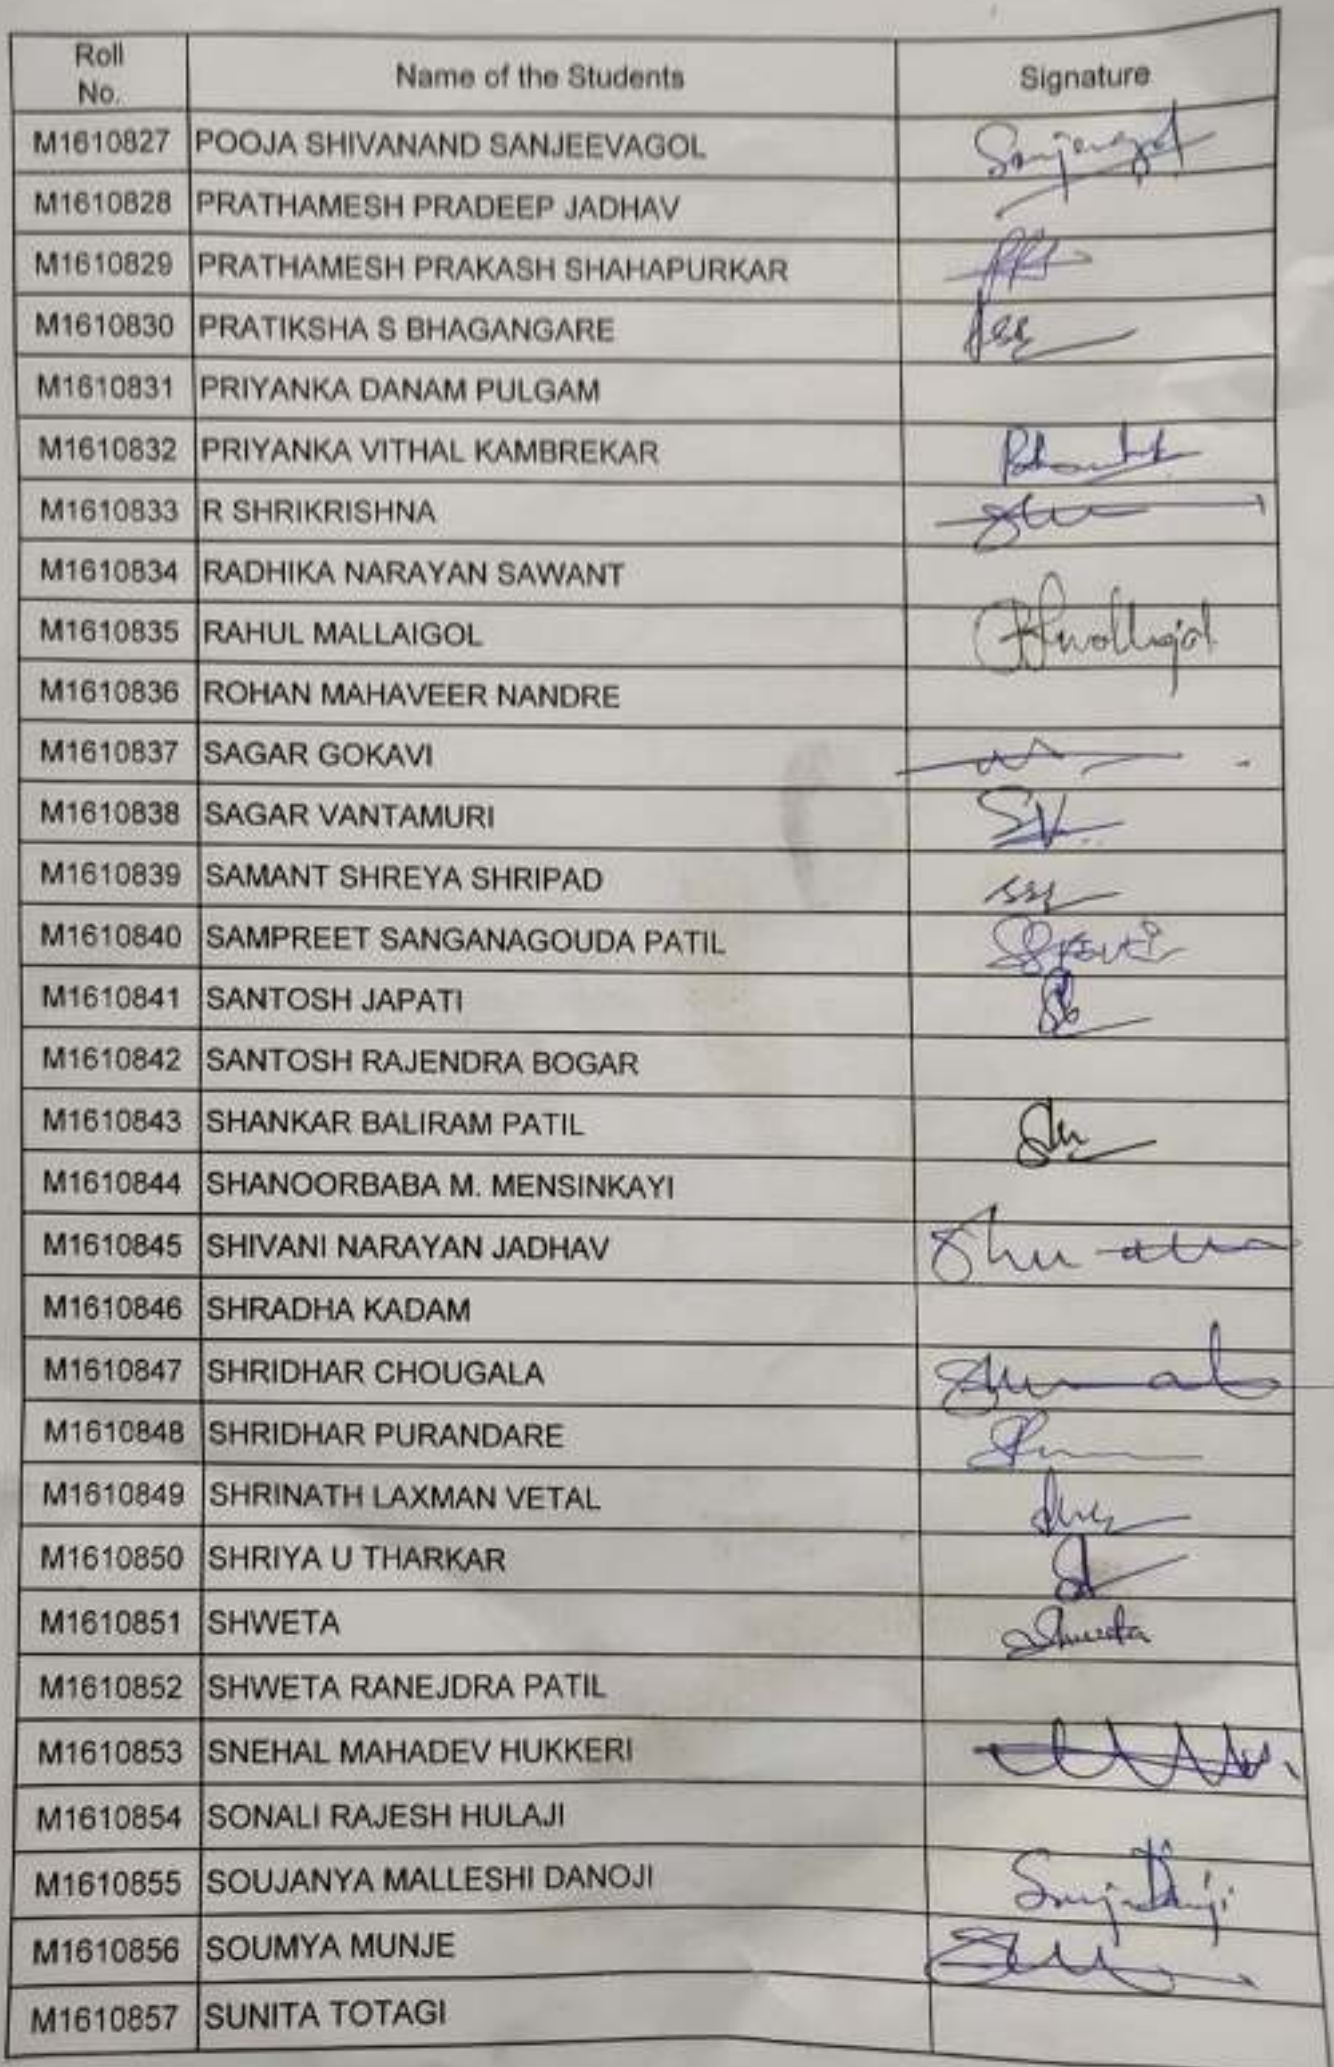 Roll No. Name of the Students Signature
M1610827 POOJA SHIVANAND SANJEEVAGOL Sanjeevagol
M1610828 PRATHAMESH PRADEEP JADHAV
M1610829 PRATHAMESH PRAKASH SHAHAPURKAR
M1610830 PRATIKSHA S BHAGANGARE
M1610831 PRIYANKA DANAM PULGAM
M1610832 PRIYANKA VITHAL KAMBREKAR
M1610833 R SHRIKRISHNA
M1610834 RADHIKA NARAYAN SAWANT
M1610835 RAHUL MALLAIGOL
M1610836 ROHAN MAHAVEER NANDRE
M1610837 SAGAR GOKAVI
M1610838 SAGAR VANTAMURI SV
M1610839 SAMANT SHREYA SHRIPAD
M1610840 SAMPREET SANGANAGOUDA PATIL
M1610841 SANTOSH JAPATI
M1610842 SANTOSH RAJENDRA BOGAR
M1610843 SHANKAR BALIRAM PATIL
M1610844 SHANOORBABA M. MENSINKAYI
M1610845 SHIVANI NARAYAN JADHAV
M1610846 SHRADHA KADAM
M1610847 SHRIDHAR CHOUGALA
M1610848 SHRIDHAR PURANDARE
M1610849 SHRINATH LAXMAN VETAL
M1610850 SHRIYA U THARKAR
M1610851 SHWETA Shweta
M1610852 SHWETA RANEJDRA PATIL
M1610853 SNEHAL MAHADEV HUKKERI
M1610854 SONALI RAJESH HULAJI
M1610855 SOUJANYA MALLESHI DANOJI
M1610856 SOUMYA MUNJE
M1610857 SUNITA TOTAGI